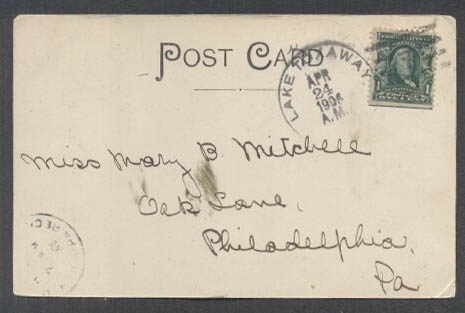 POST CARD
LAKE TOXAWAY
APR
24
1906
A.M.
Miss Mary B. Mitchell
Oak Lane,
Philadelphia,
Pa
REC'